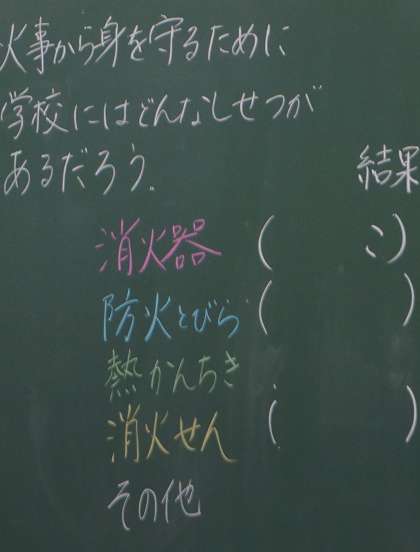 火事から身を守るために
学校にはどんなしせつが
あるだろう。
結果
消火器 ( こ)
防火とびら ( )
熱かんちき
消火せん ( )
その他